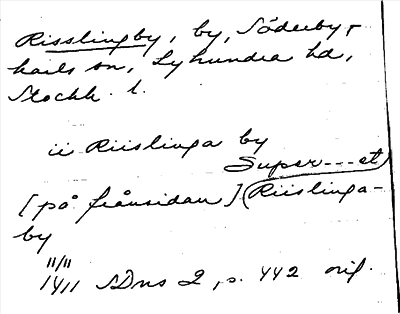 Risslingby, by, Söderby-
karls sn, Lyhundra hd,
Stockh. l.
ii Riislinga by
Super---et
[på frånsidan] (Riislinga-
by
11/11
1411 SDns 2, s. 442 orig.